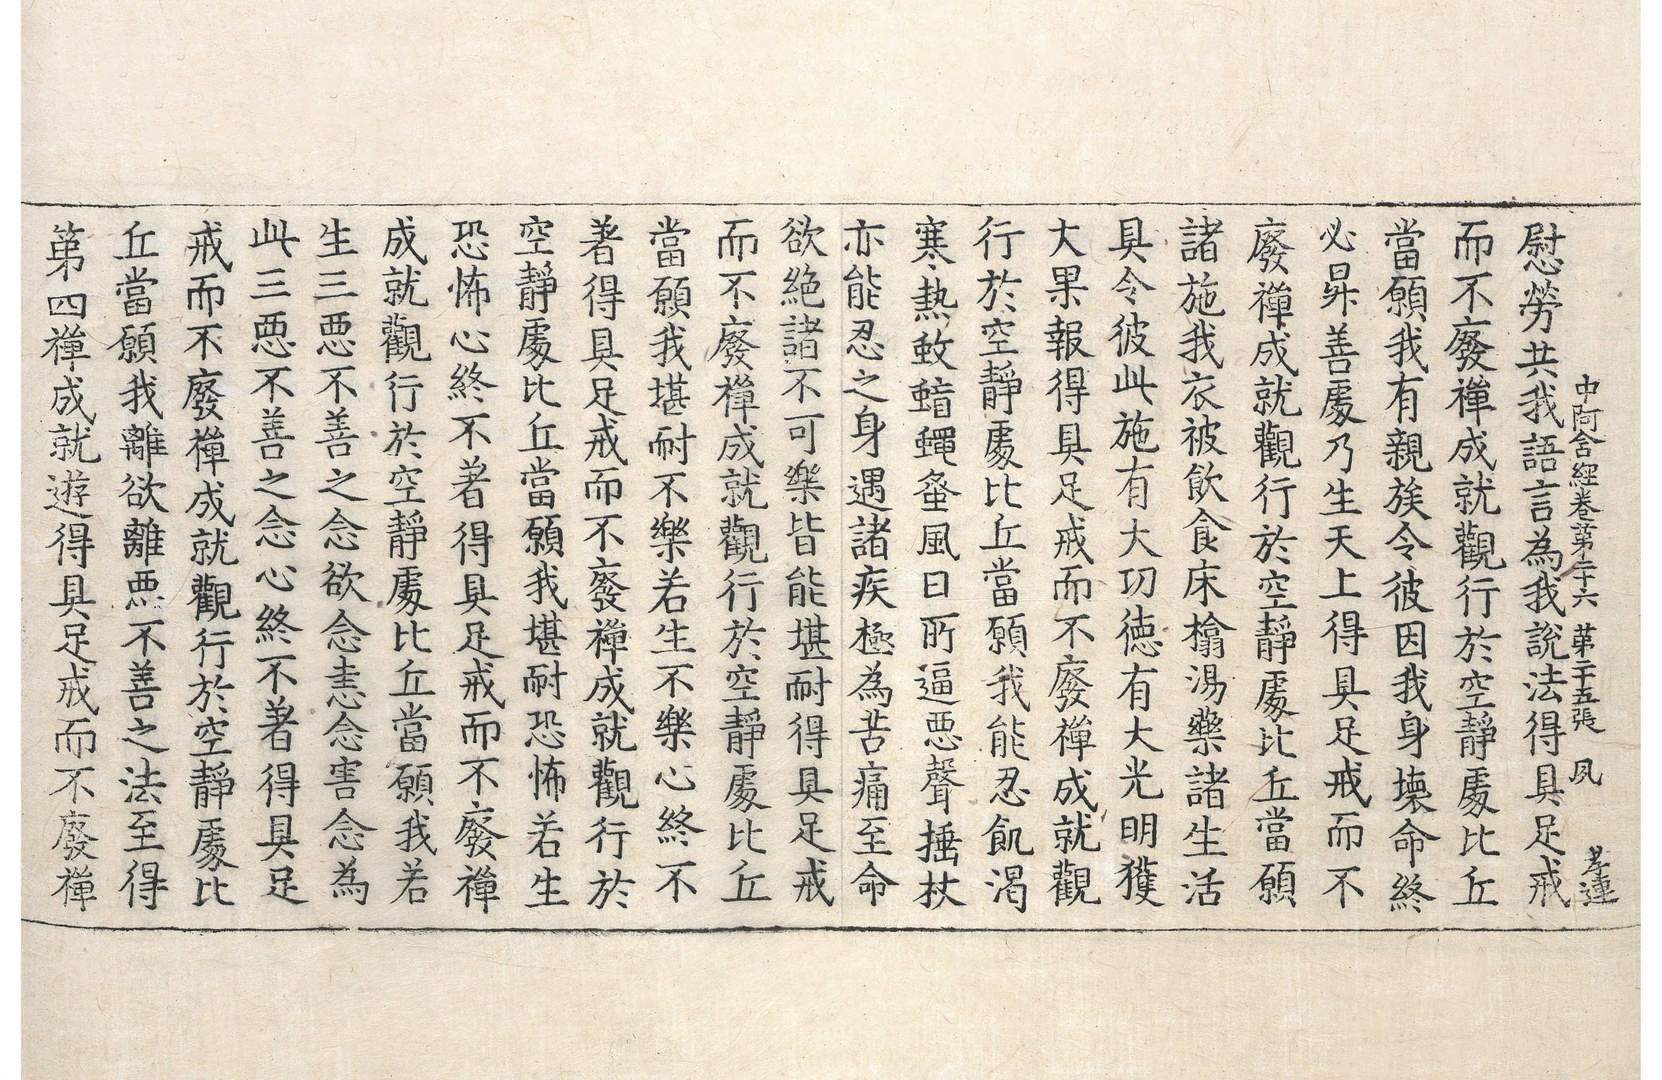 中阿含經卷第二十六 第二十五張 夙
慰勞共我語言為我說法得具足戒
而不廢禪成就觀行於空靜處比丘
當願我有親族令彼因我身壞命終
必昇善處乃生天上得具足戒而不
廢禪成就觀行於空靜處比丘當願
諸施我衣被飲食床榻湯藥諸生活
具令彼此施有大功德有大光明獲
大果報得具足戒而不廢禪成就觀
行於空靜處比丘當願我能忍飢渴
寒熱蚊䗈蠅蚤風日所逼惡聲捶杖
亦能忍之身遇諸疾極為苦痛至命
欲絕諸不可樂皆能堪耐得具足戒
而不廢禪成就觀行於空靜處比丘
當願我堪耐不樂若生不樂心終不
著得具足戒而不廢禪成就觀行於
空靜處比丘當願我堪耐恐怖若生
恐怖心終不著得具足戒而不廢禪
成就觀行於空靜處比丘當願我若
生三惡不善之念欲念恚念害念為
此三惡不善之念心終不著得具足
戒而不廢禪成就觀行於空靜處比
丘當願我離欲離惡不善之法至得
第四禪成就遊得具足戒而不廢禪